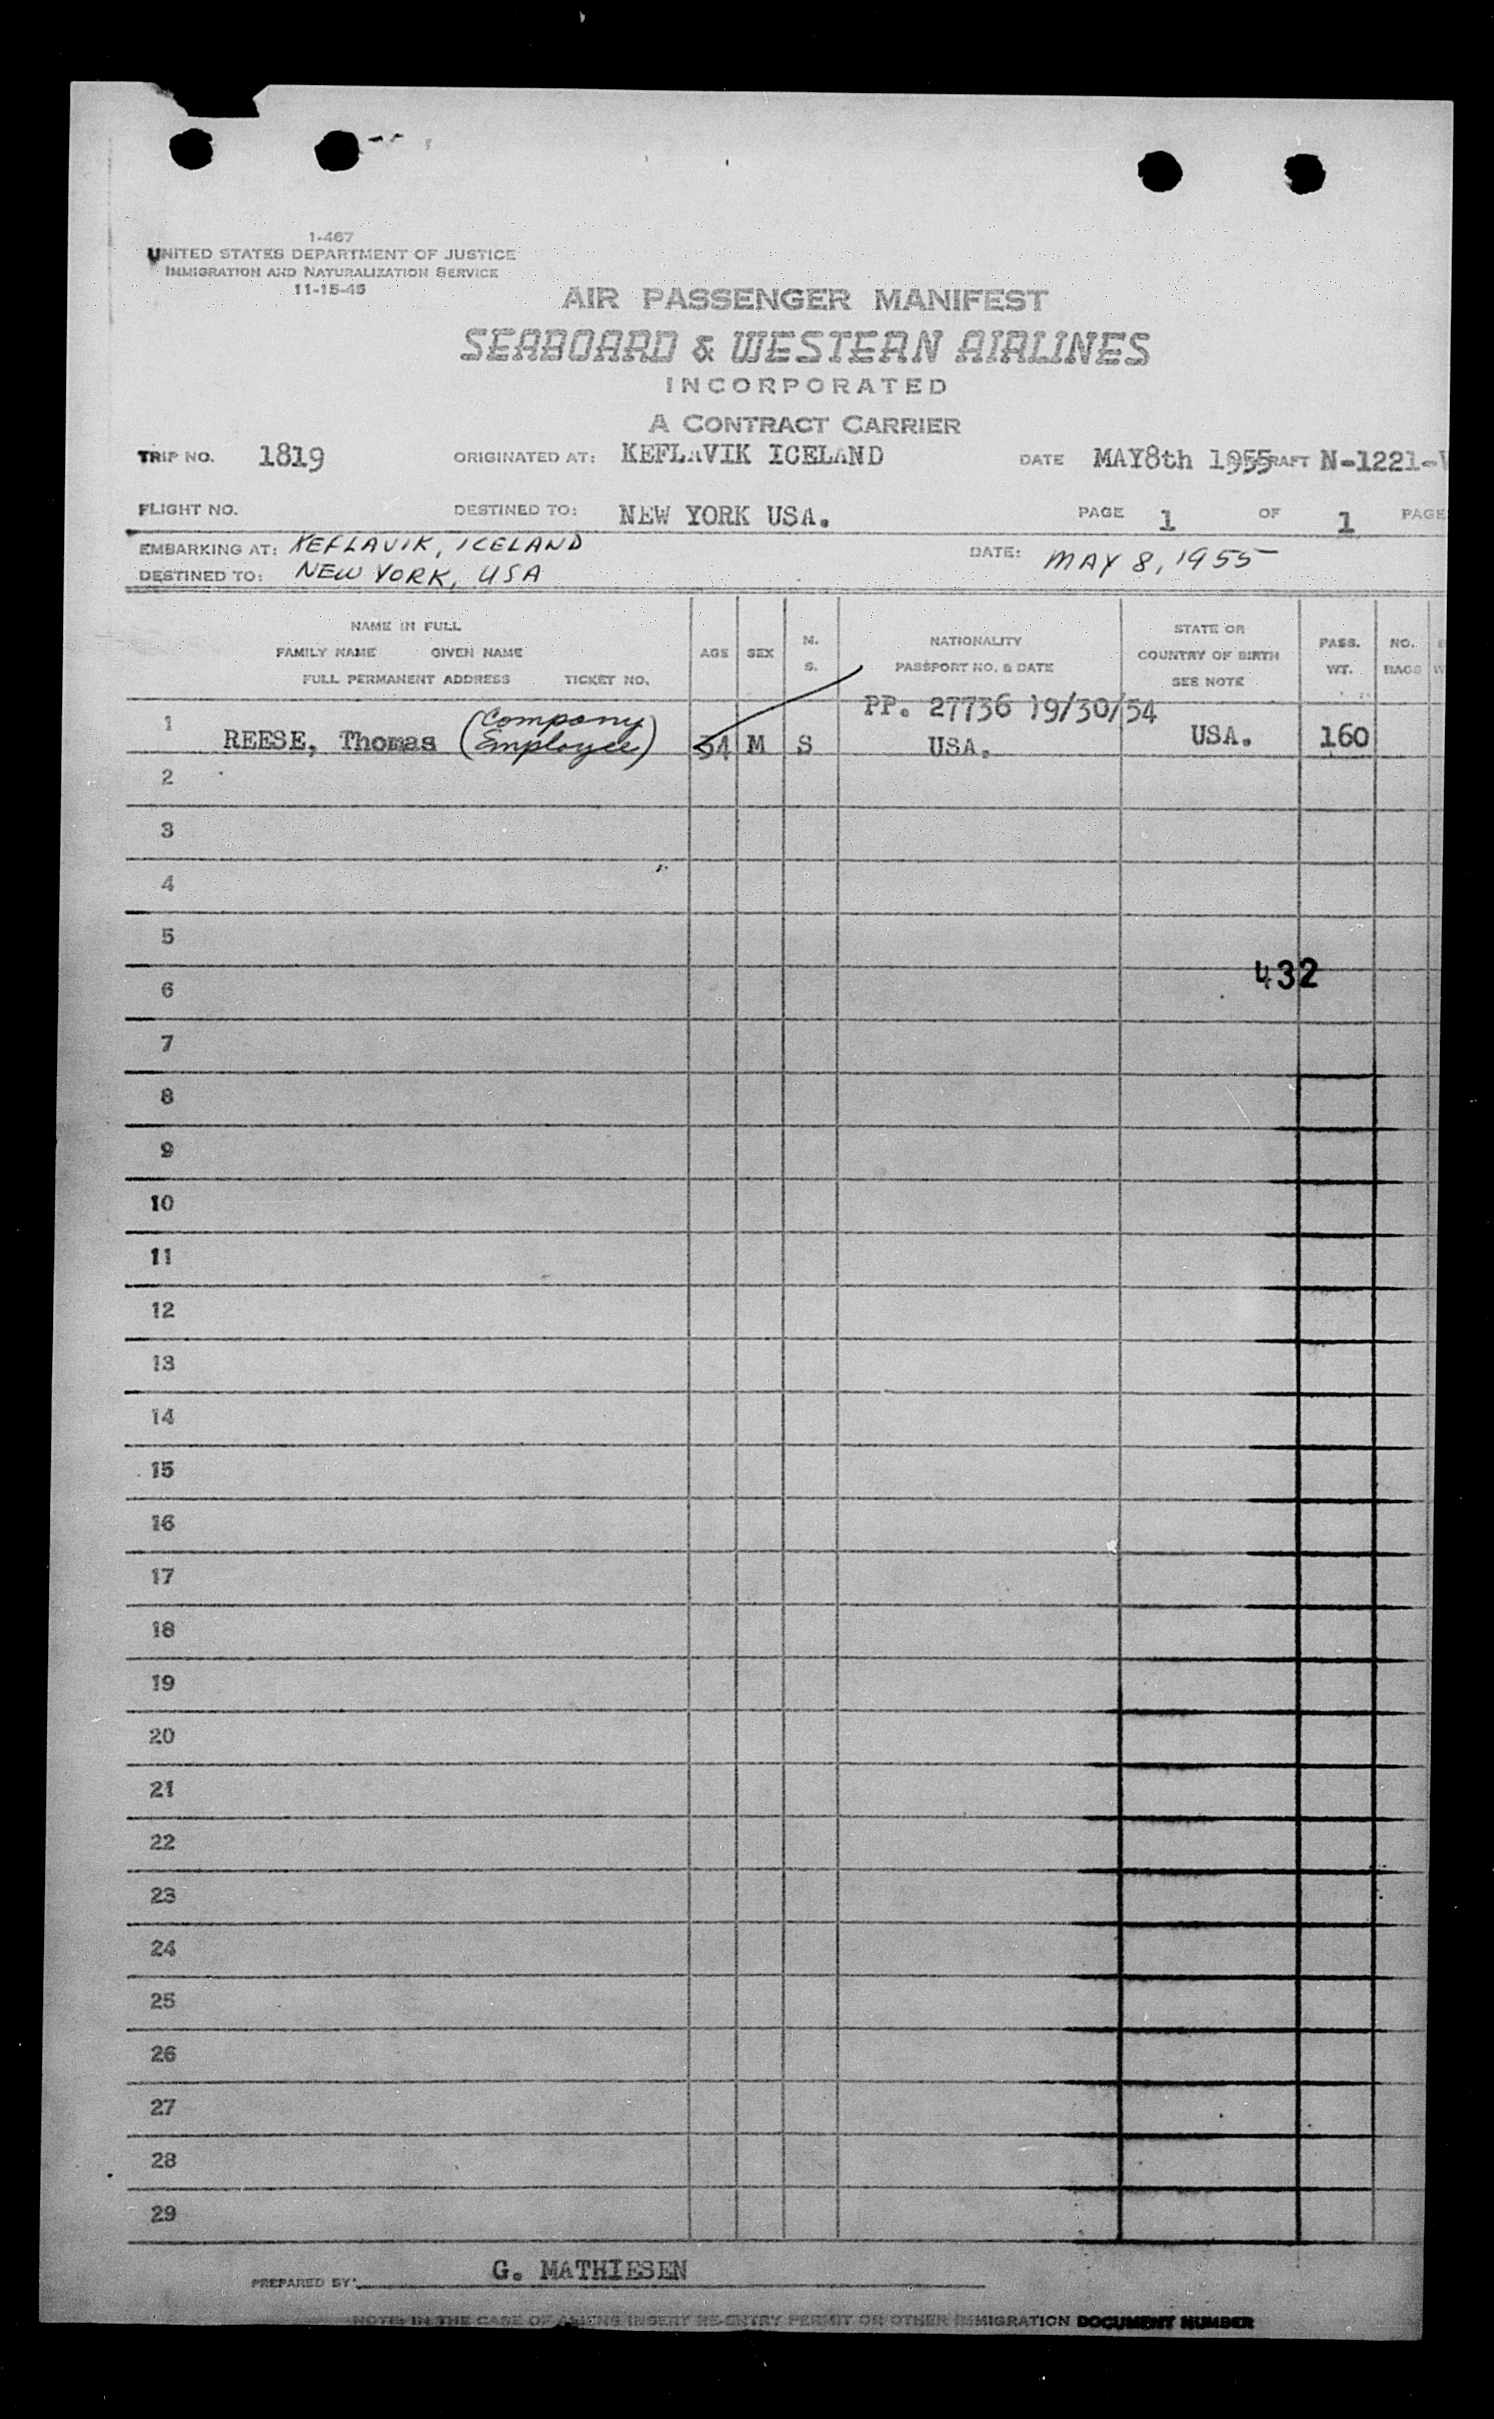 1-467
UNITED STATES DEPARTMENT OF JUSTICE
IMMIGRATION AND NATURALIZATION SERVICE
11-15-45
AIR PASSENGER MANIFEST
SEABOARD & WESTERN AIRLINES
INCORPORATED
A CONTRACT CARRIER
TRIP NO. 1819 ORIGINATED AT: KEFLAVIK ICELAND DATE MAY8th 1955 RAFT N-1221-V
FLIGHT NO. DESTINED TO: NEW YORK USA. PAGE 1 OF 1 PAGE
EMBARKING AT: KEFLAVIK, ICELAND DATE: MAY 8, 1955
DESTINED TO: NEW YORK, USA
NAME IN FULL
FAMILY NAME GIVEN NAME
FULL PERMANENT ADDRESS TICKET NO.
AGE
SEX
M.
S.
NATIONALITY
PASSPORT NO. & DATE
STATE OR
COUNTRY OF BIRTH
SEE NOTE
PASS.
WT.
NO.
BAGS
1 REESE, Thomas (Company Employee) M S PP. 27736 19/30/54 USA. USA. 160
2
3
4
5
432
6
7
8
9
10
11
12
13
14
15
16
17
18
19
20
21
22
23
24
25
26
27
28
29
PREPARED BY: G. MATHIESEN
NOTE: IN THE CASE OF ALIENS INSERT RE-ENTRY PERMIT OR OTHER IMMIGRATION DOCUMENT NUMBER